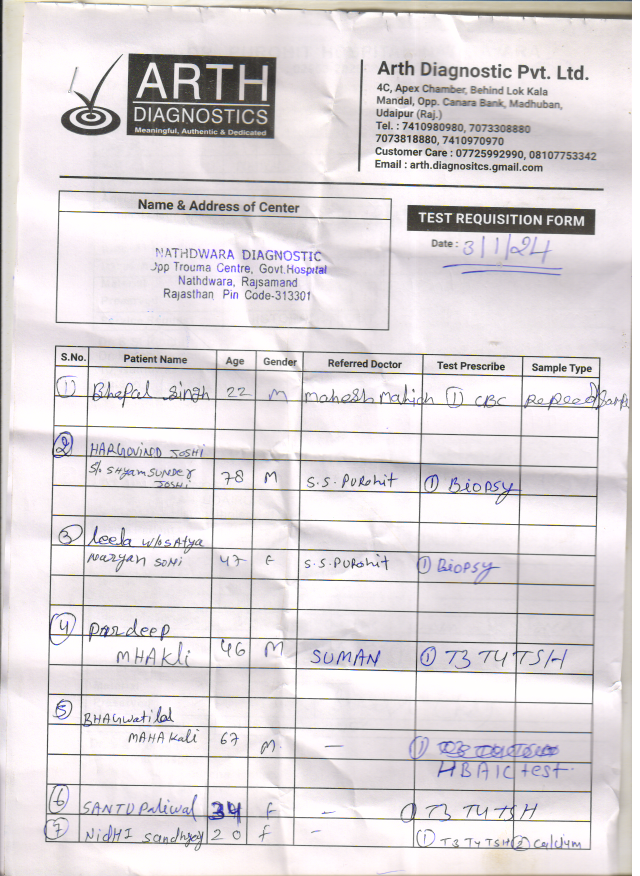 ARTH
DIAGNOSTICS
Meaningful, Authentic & Dedicated
Arth Diagnostic Pvt. Ltd.
4C, Apex Chamber, Behind Lok Kala
Mandal, Opp. Canara Bank, Madhuban,
Udaipur (Raj.)
Tel. : 7410980980, 7073308880
7073818880, 7410970970
Customer Care : 07725992990, 08107753342
Email : arth.diagnositcs.gmail.com
Name & Address of Center
NATHDWARA DIAGNOSTIC
Opp Trouma Centre, Govt. Hospital
Nathdwara, Rajsamand
Rajasthan Pin Code-313301
TEST REQUISITION FORM
Date : 3/1/24
S.No. Patient Name Age Gender Referred Doctor Test Prescribe Sample Type
1 Bhopal Singh 22 M Mahesh 1 CBC
2 HARGOVIND JOSHI
S/o SHYAM SUNDER 78 M S.S. PUROHIT 1 Biopsy
JOSHI
3 leela w/o Satya
Naryan SONI 47 F S.S. PUROHIT 1 Biopsy
4 Pardeep
MHAKli 46 M SUMAN 1 T3 T4 TSH
5 BHAGWatilal
MAHAKali 67 M. — 1
HBA1C test.
6 SANTU Paliwal 34 F — 1 T3 T4 TSH
7 NidHI 20 F — 1 T3 T4 TSH 2 Calcium